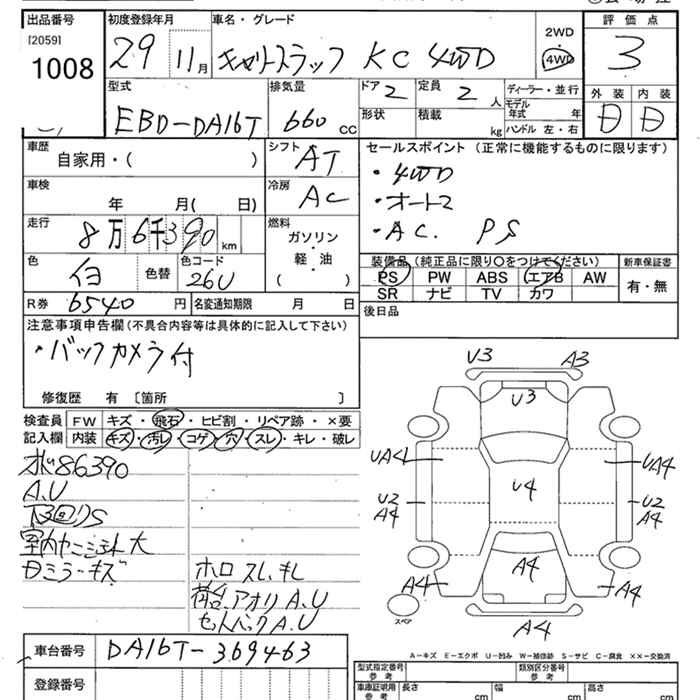 出品番号 初度登録年月 車名・グレード 評価点
[2059] 1008
29 11月 キャリートラック KC 4WD 2WD 4WD 3
外装 内装
D D
型式 排気量 ドア 定員 ディーラー・並行
EBD-DA16T 660 CC 2 2 人
モデル年式 年
形状 積載 kg ハンドル 左・右
車歴 シフト セールスポイント (正常に機能するものに限ります)
自家用・( ) AT
・4WD
車検 冷房 ・オートマ
年 月( 日) AC ・AC. PS
走行 燃料
8万6千390 km ガソリン・軽・油 ( )
装備品(純正品に限り○をつけてください) 新車保証書
PS PW ABS エアB AW 有・無
SR ナビ TV カワ
色 色替 色コード
白 26U
R券 6540 円 名変通知期限 月 日 後日品
注意事項申告欄(不具合内容等は具体的に記入して下さい)
・バックカメラ付
修復歴 有 〔箇所 〕
検査員記入欄 FW キズ・飛石・ヒビ割・リペア跡・×要
内装 キズ・汚レ・コゲ・穴・スレ・キレ・破レ
86390
A.U
下回りS
大
キズ
ホロ スレ、キレ
アオリ A.U
A.U
V3 A3
U3
UA4 UA4
U4
U2 U2
A4 A4
A4
A4 A4
A4
スペア
A-キズ E-エクボ U-凹み W-補修跡 S-サビ C-腐食 ××-交換済
車台番号 DA16T-369463
登録番号
型式指定番号 参考 類別区分番号 参考
車庫証明用 参考 長さ cm 幅 cm 高さ cm